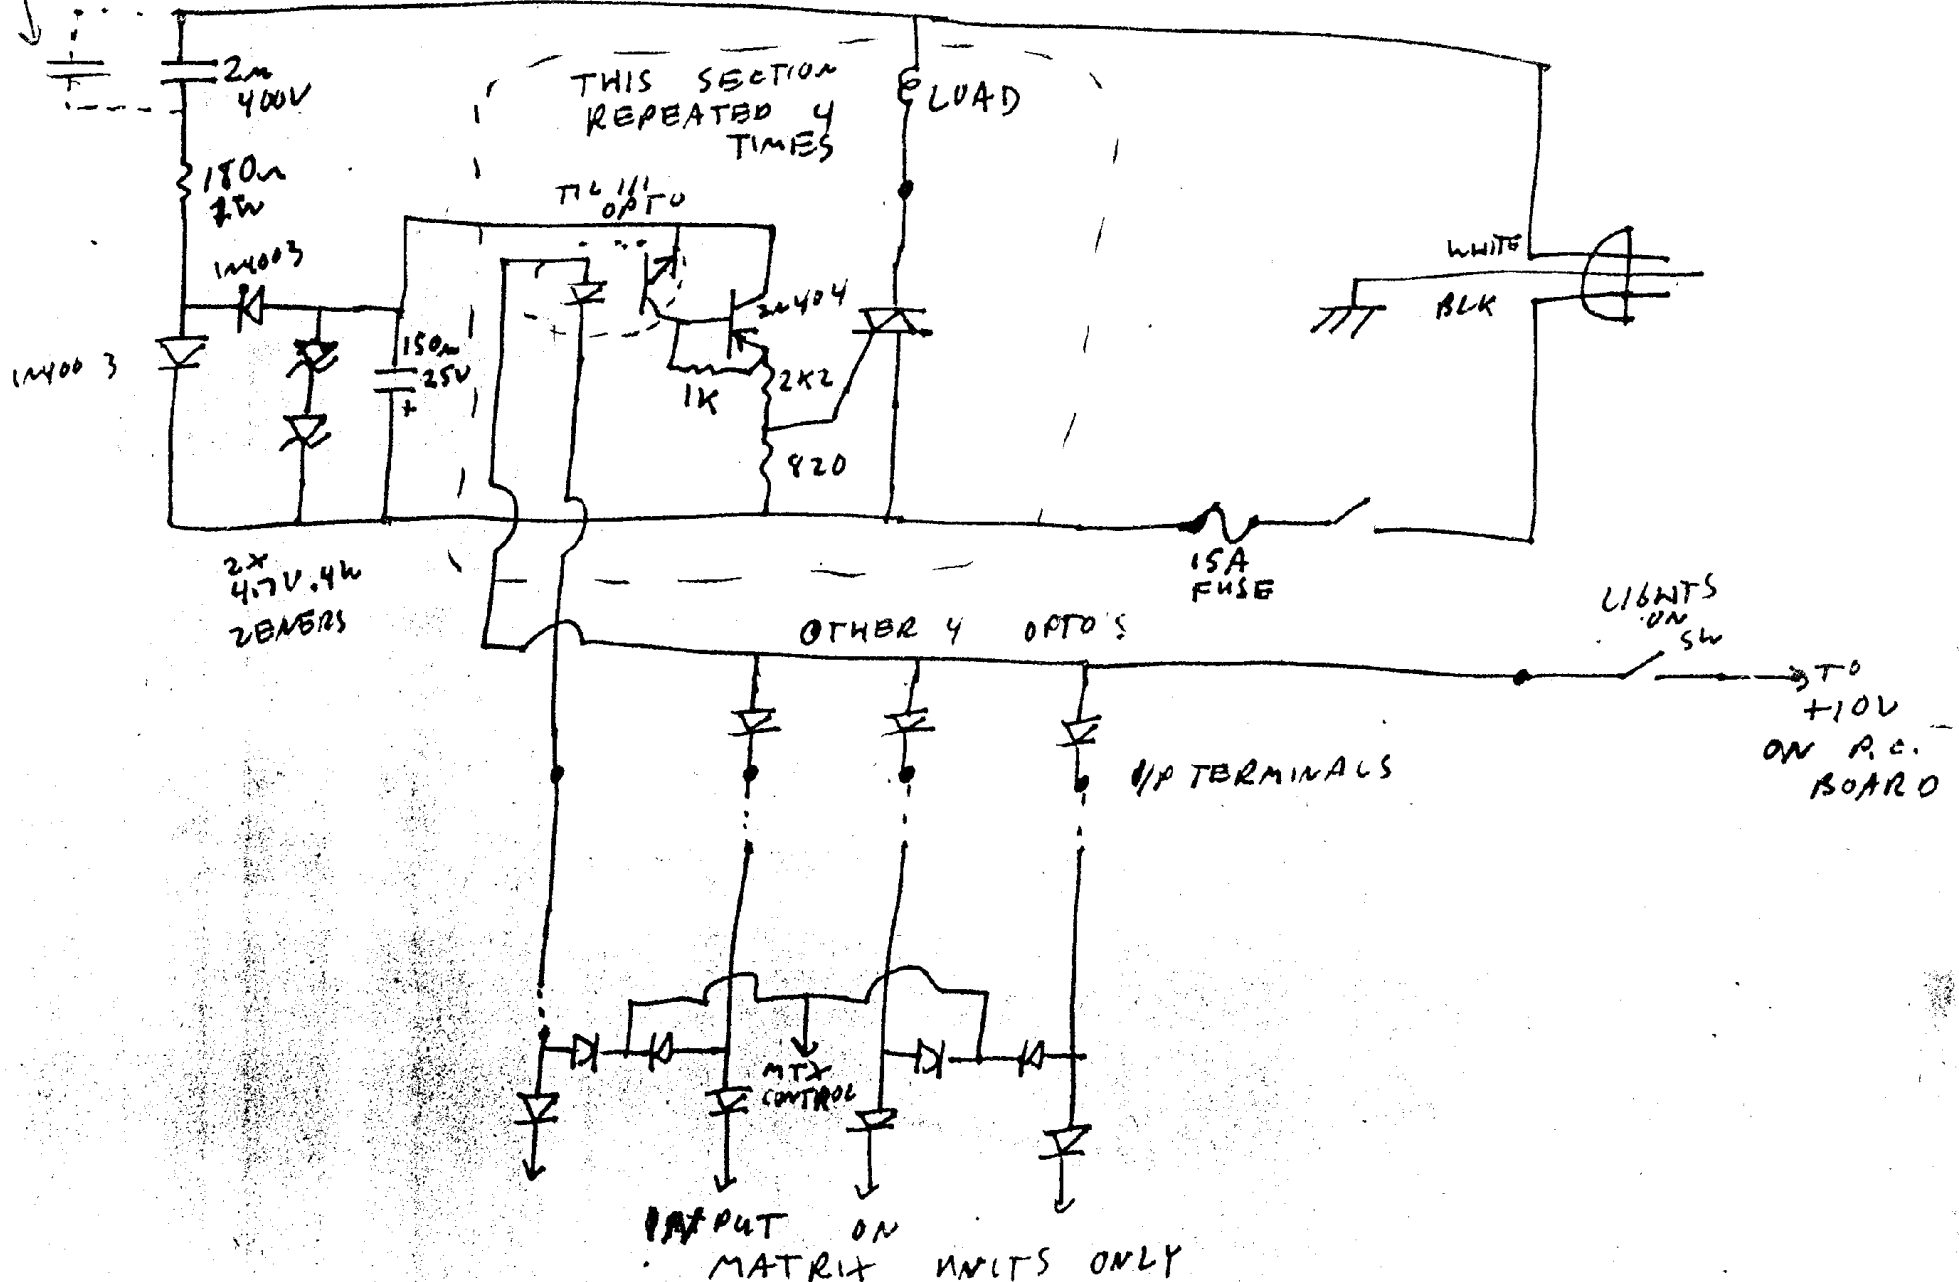 2μ
400V
THIS SECTION
REPEATED 4
TIMES
LOAD
180Ω
2W
TIL 111
OPTO
1N4003
WHITE
BLK
2N404
1N4003
150μ
25V
+
1K
2K2
820
2X
4.7V.4W
ZENERS
15A
FUSE
LIGHTS
ON
SW
OTHER 4 OPTO'S
TO
+10V
ON P.C.
BOARD
I/P TERMINALS
MTX
CONTROL
INPUT ON
MATRIX UNITS ONLY